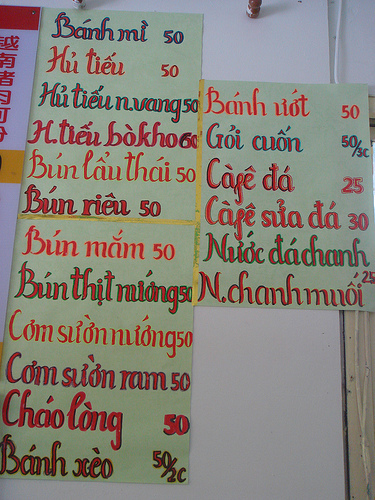 越
南
猪
肉
河
粉
Bánh mì 50
Hủ tiếu 50
Hủ tiếu n.vang 50
H.tiếu bò kho 60
Bún lẩu thái 50
Bún riêu 50
Bún mắm 50
Bún thịt nướng 50
Cơm sườn nướng 50
Cơm sườn ram 50
Cháo lòng 50
Bánh xèo 50/2c
Bánh ướt 50
Gỏi cuốn 50/3c
Càfê đá 25
Càfê sữa đá 30
Nước đá chanh
N.chanh muối 25